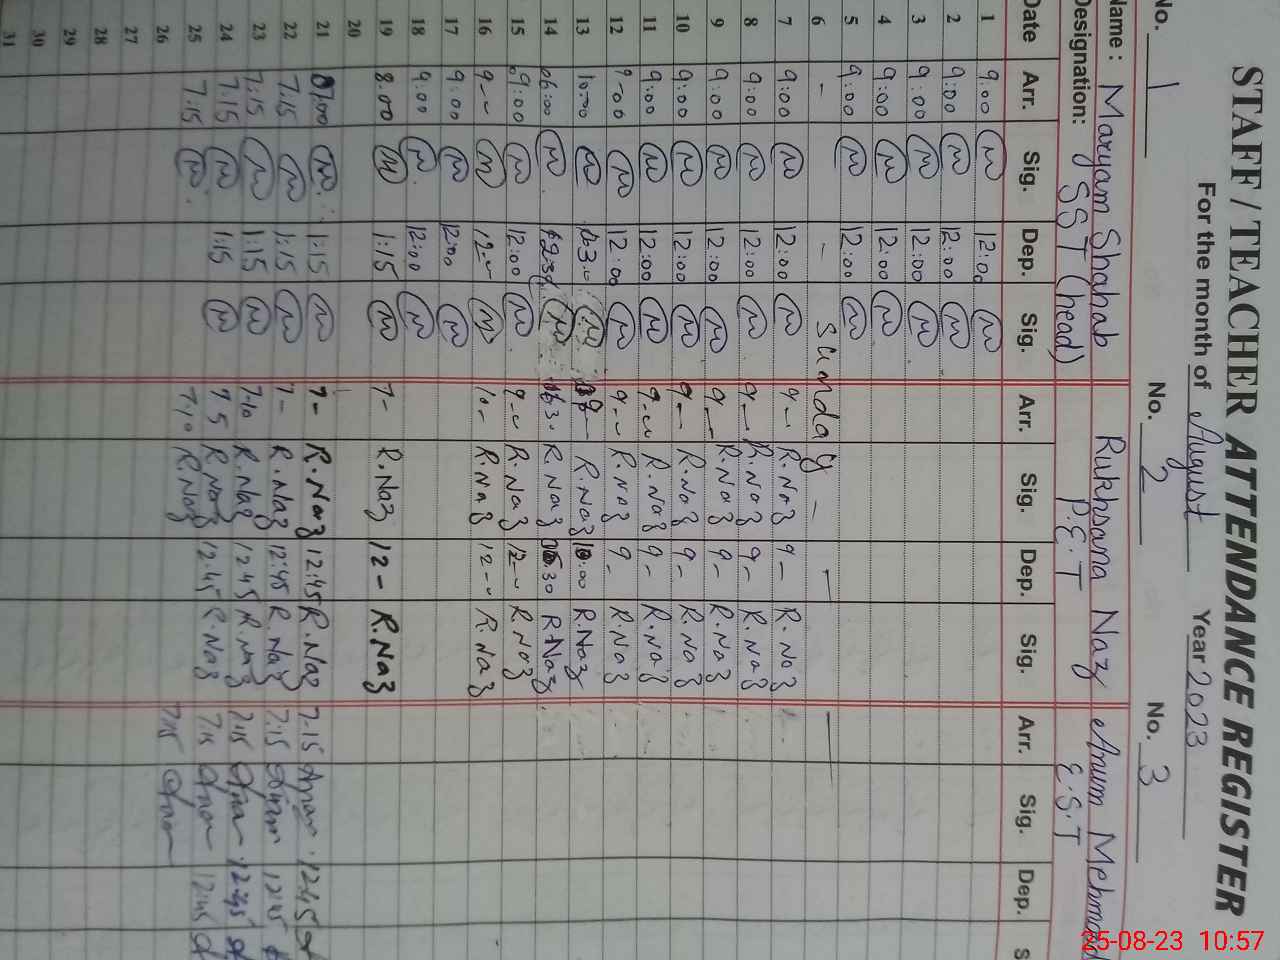 STAFF / TEACHER ATTENDANCE REGISTER
For the month of August Year 2023
No. 1 No. 2 No. 3
Name: Maryam Shahab Rukhsana Naz Anum Mehmood
Designation: SST (head) P.E.T E.S.T
Date Arr. Sig. Dep. Sig. Arr. Sig. Dep. Sig. Arr. Sig. Dep. S
1 9:00 M 12:00 M
2 9:00 M 12:00 M
3 9:00 M 12:00 M
4 9:00 M 12:00 M
5 9:00 M 12:00 M
6 - - Sunday - - -
7 9:00 M 12:00 M 9- R.Naz 9- R.Naz
8 9:00 M 12:00 M 9- R.Naz 9- R.Naz
9 9:00 M 12:00 M 9- R.Naz 9- R.Naz
10 9:00 M 12:00 M 9- R.Naz 9- R.Naz
11 9:00 M 12:00 M 9-- R.Naz 9- R.Naz
12 9-00 M 12:00 M 9-- R.Naz 9- R.Naz
13 10:00 M M R.Naz R.Naz
14 06:00 M M R.Naz R.Naz
15 09:00 M 12:00 M 9-- R.Naz 12-- R.Naz
16 9-- M 12-- M 10- R.Naz 12-- R.Naz
17 9:00 M 12:00 M
18 9:00 M 12:00 M
19 8:00 M 1:15 M 7- R.Naz 12- R.Naz
20
21 07:00 M 1:15 M 7- R.Naz 12:45 R.Naz 7:15 Anum 12:45
22 7:15 M 1:15 M 7- R.Naz 12:45 R.Naz 7:15 Anum 12:45
23 7:15 M 1:15 M 7-10 R.Naz 12:45 R.Naz 7:15 Anum 12:45
24 7:15 M 1:15 M R.Naz 12:45 R.Naz 7:15 Anum 12:45
25 7:15 M 7:10 R.Naz
26 7:15 Anum
27
28
29
30
31
25-08-23 10:57